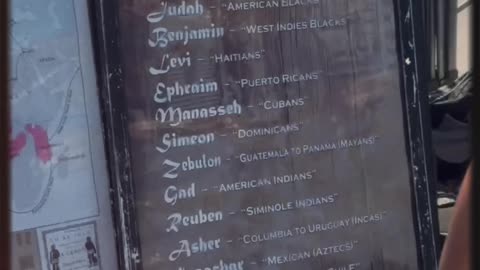 Judah – "AMERICAN BLACKS"
Benjamin – "WEST INDIES BLACKS"
Levi – "HAITIANS"
Ephraim – "PUERTO RICANS"
Manasseh – "CUBANS"
Simeon – "DOMINICANS"
Zebulon – "GUATEMALA TO PANAMA (MAYANS)"
Gad – "AMERICAN INDIANS"
Reuben – "SIMINOLE INDIANS"
Asher – "COLUMBIA TO URUGUAY (INCAS)"
– "MEXICAN (AZTECS)"